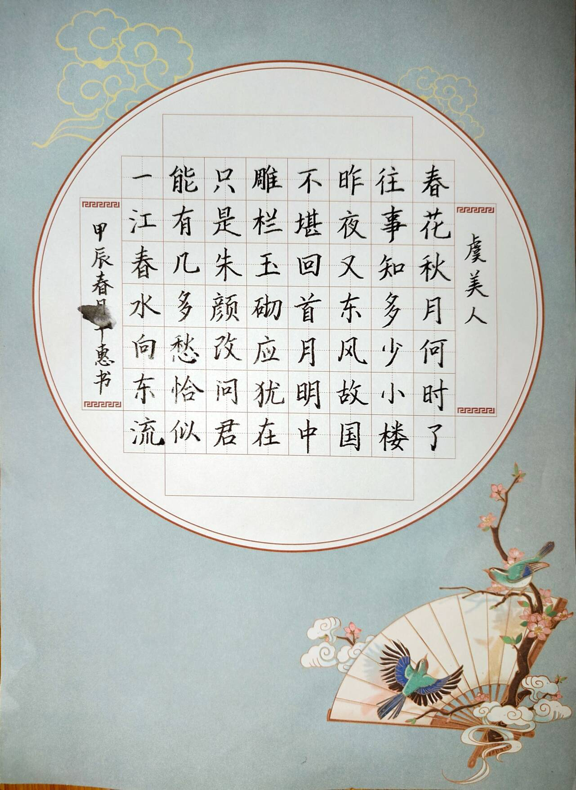 虞美人
春花秋月何时了
往事知多少小楼
昨夜又东风故国
不堪回首月明中
雕栏玉砌应犹在
只是朱颜改问君
能有几多愁恰似
一江春水向东流
甲辰春月惠书